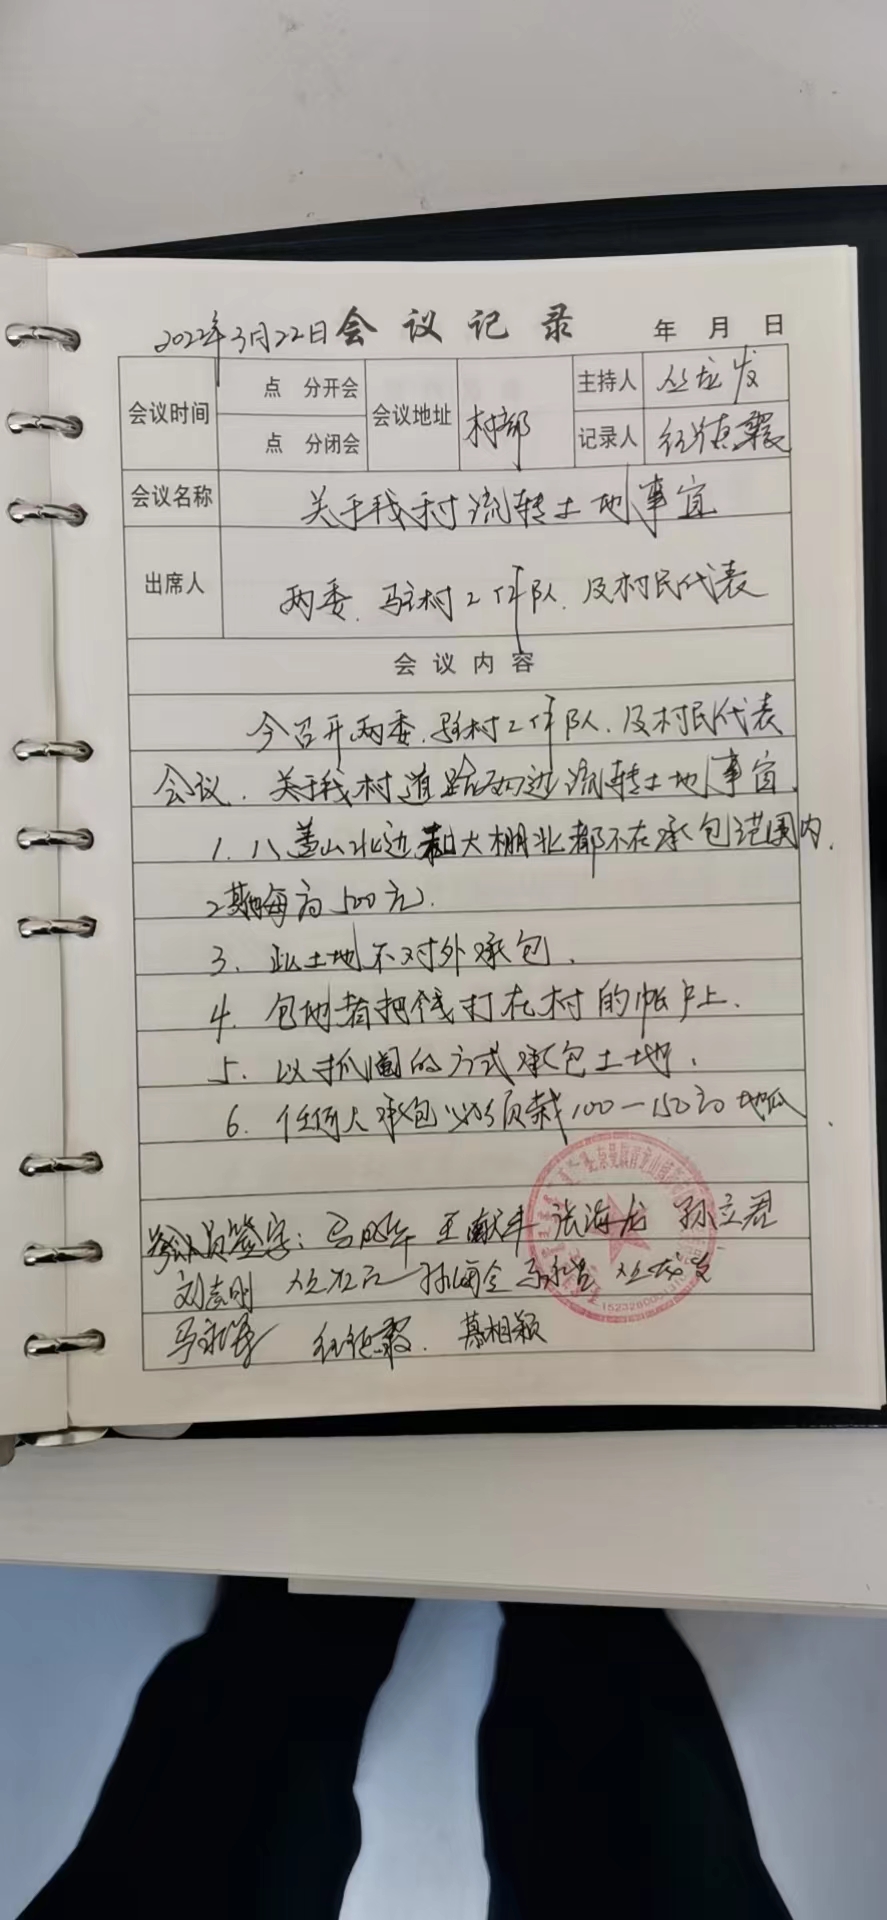 2022年3月22日 会议记录 年 月 日
会议时间 点 分开会 会议地址 村部 主持人 丛龙发
点 分闭会 记录人 任德
会议名称 关于我村流转土地事宜
出席人 两委、驻村工作队、及村民代表
会议内容
今召开两委、驻村工作队、及村民代表
会议、关于我村道路西边流转土地事宜、
1、八盖山北边和大棚北都不在承包范围内、
2、每亩500元、
3、此土地不对外承包、
4、包地者把钱打在村的帐户上、
5、以抓阄的方式承包土地、
6、任何人承包必须栽100—150亩地瓜
参会人员签字: 王献丰 张海龙 孙立君
刘志刚 丛龙发
任德 慕相颖